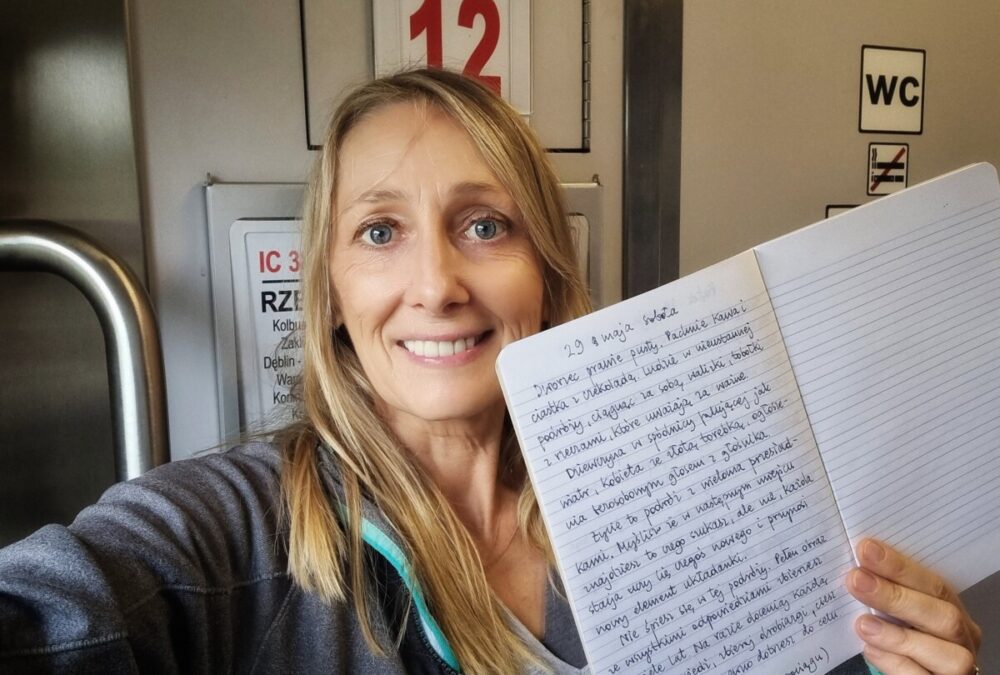 12
WC
IC 3
RZE
Kolbus
Zakl
Dęblin -
Wars
Kon
29 maja sobota
Dworzec prawie pusty. Pachnie kawa i
ciastka z czekoladą, ludzie w nieustannej
podróży, ciągnąc za sobą walizki, tobołki
z rzeczami, które uważają za ważne.
Dziewczyna w spódnicy falującej jak
wiatr, kobieta ze złotą torebką, ogłosze-
nia bezosobowym głosem z głośnika.
Życie to podróż z wieloma przesiad-
kami. Myślisz że w następnym miejscu
znajdziesz to czego szukasz, ale nie, każda
stacja uczy Cię czegoś nowego i przynosi
nowy element układanki.
Nie śpiesz się w tej podróży. Pełen obraz
ze wszystkimi odpowiedziami zbierzesz
lat. Na razie doceniaj każdą
zbieraj drobiazgi, ciesz
dotrzesz do celu
pociągu)